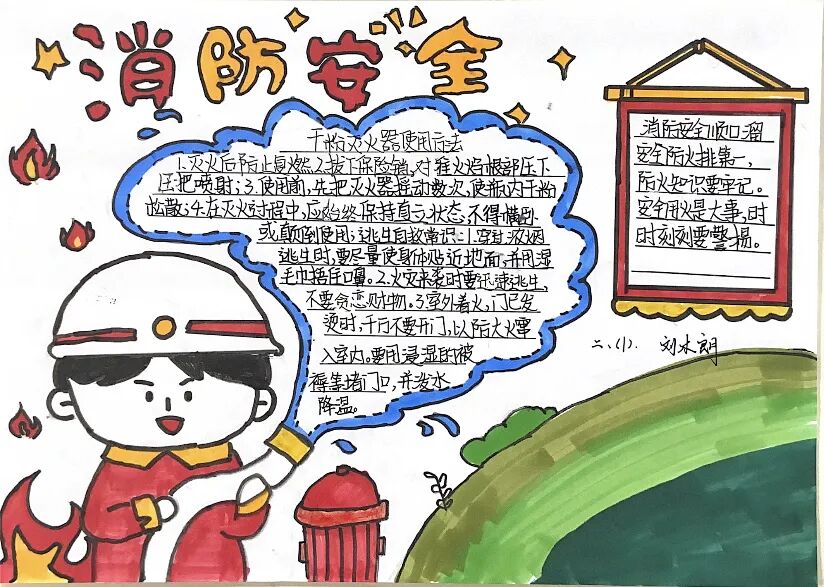 消防安全
干粉灭火器使用方法
1.灭火后防止复燃2.拔下保险销,对准火焰根部压下
压把喷射;3.使用前,先把灭火器摇动数次,使瓶内干粉
松散;4.在灭火过程中,应始终保持直立状态,不得横卧
或颠倒使用;逃生自救常识:1.穿过浓烟
逃生时,要尽量使身体贴近地面,并用湿
毛巾捂住口鼻。2.火灾来袭时要迅速逃生,
不要贪恋财物。3.室外着火,门已发
烫时,千万不要开门,以防大火窜
入室内,要用浸湿的被
褥等堵门口,并泼水
降温。
消防安全顺口溜
安全防火排第一,
防火知识要牢记。
安全用火是大事,时
时刻刻要警惕。
二、(1). 刘木朗